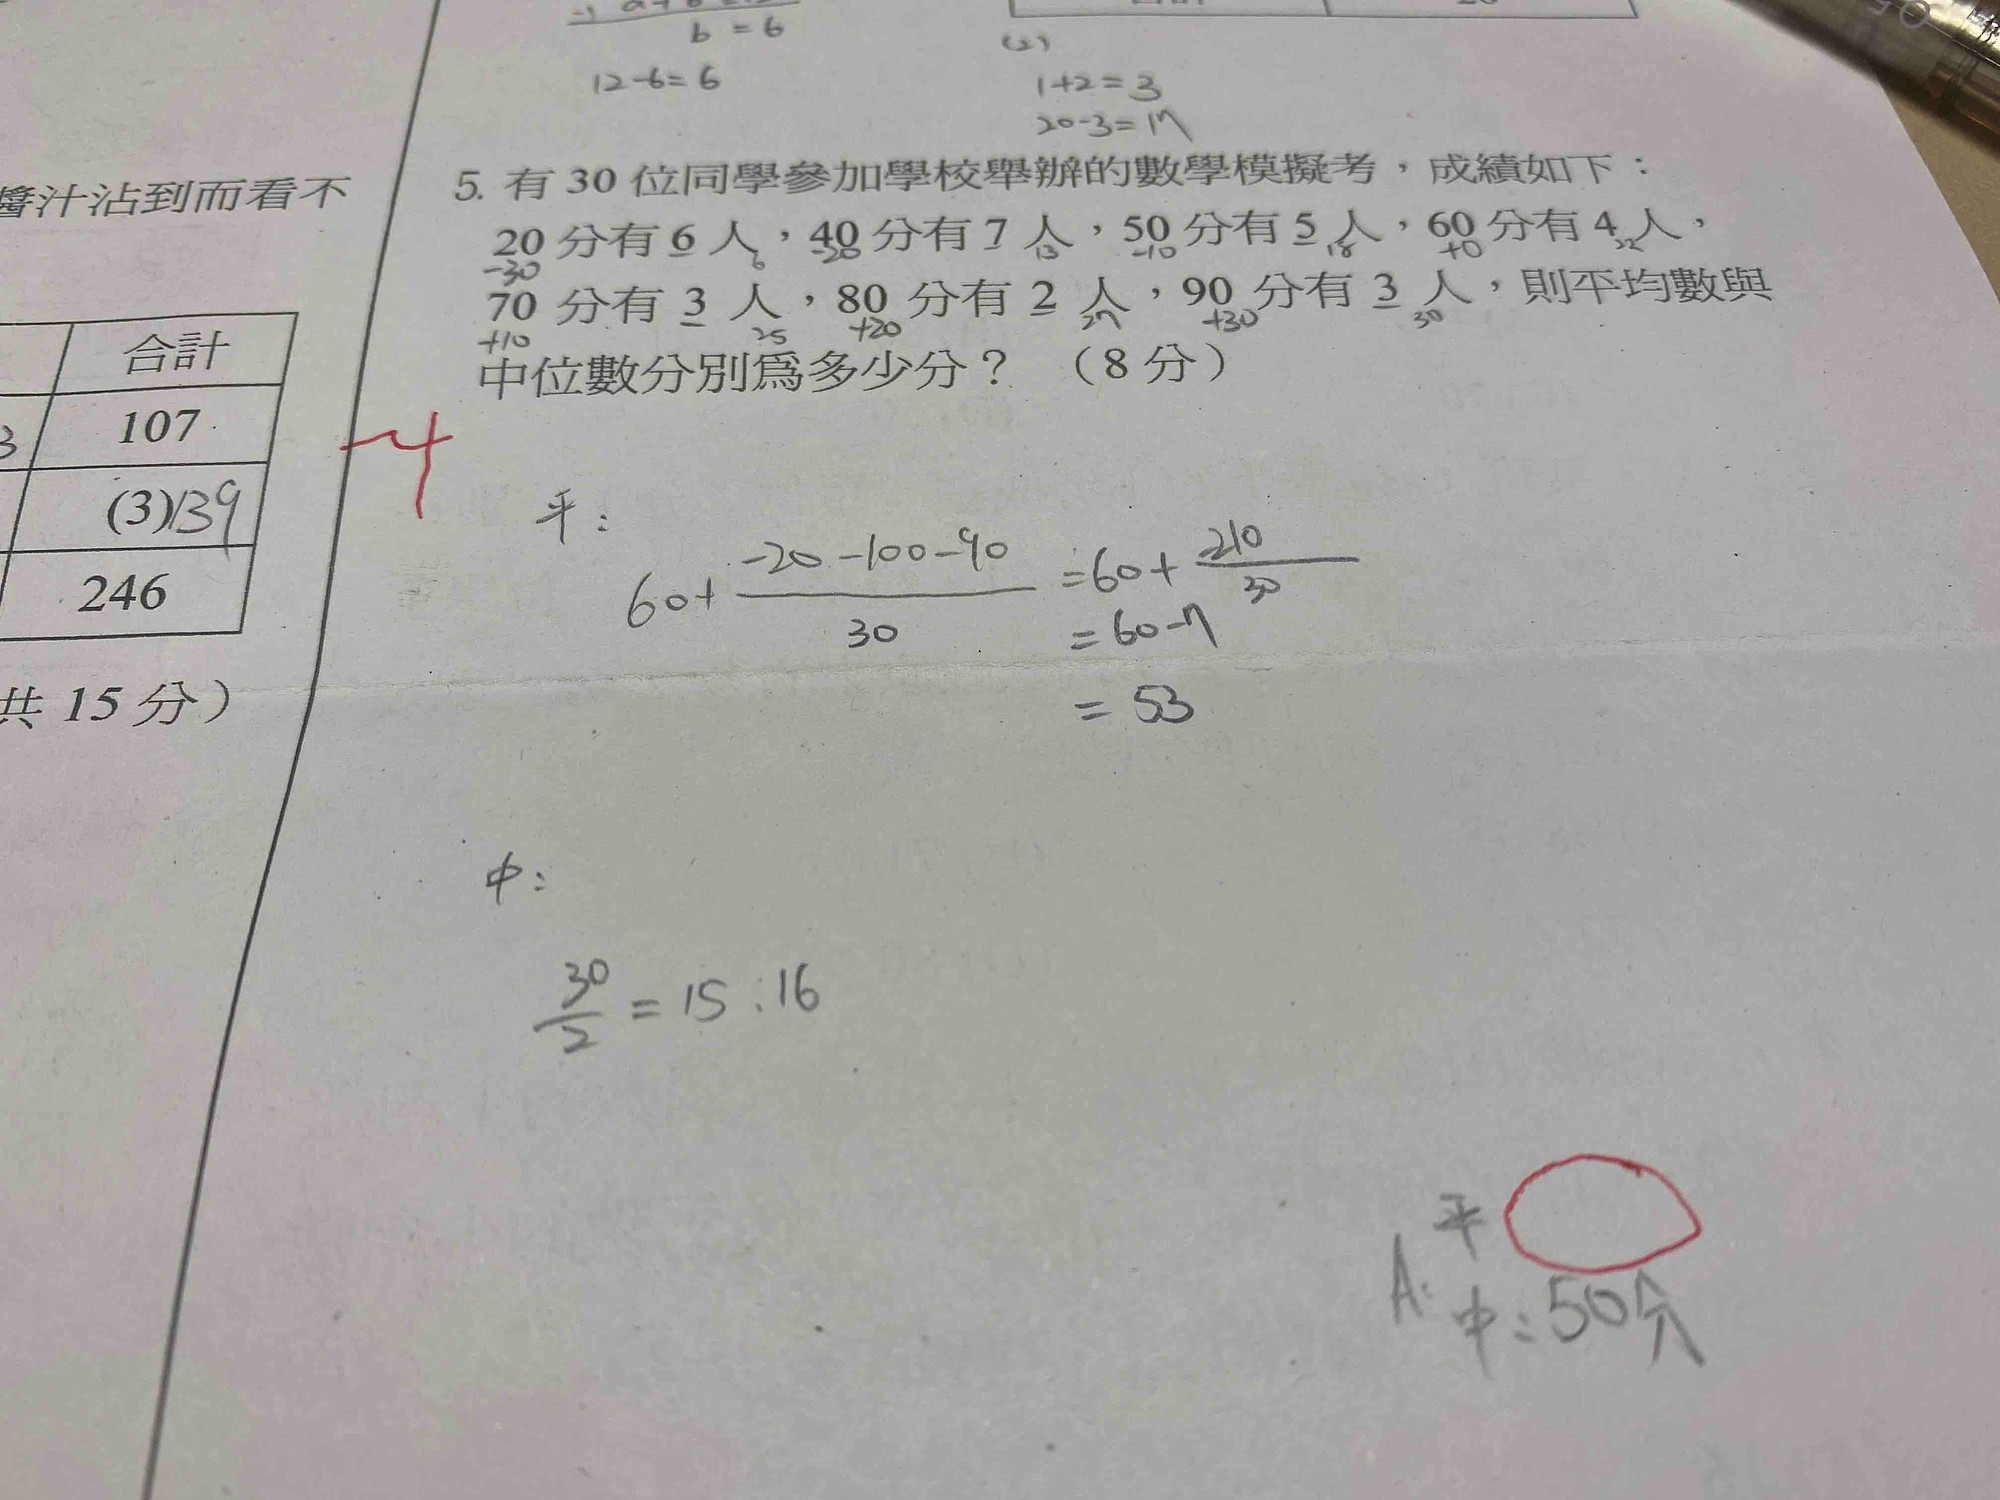 b = 6
12-6=6
(2)
1+2=3
20-3=17
醬汁沾到而看不
合計
107
3
(3)139
246
共 15 分）
5. 有 30 位同學參加學校舉辦的數學模擬考，成績如下：
20 分有 6 人，40 分有 7 人，50 分有 5 人，60 分有 4 人，
-30 6 -20 13 -10 18 +0 22
70 分有 3 人，80 分有 2 人，90 分有 3 人，則平均數與
+10 25 +20 27 +30 30
中位數分別為多少分？（8 分）
-4
平：
60+ -20-100-90 / 30 =60+ 210 / 30
=60-7
=53
中：
30/2 =15 . 16
A: 平
中：50分